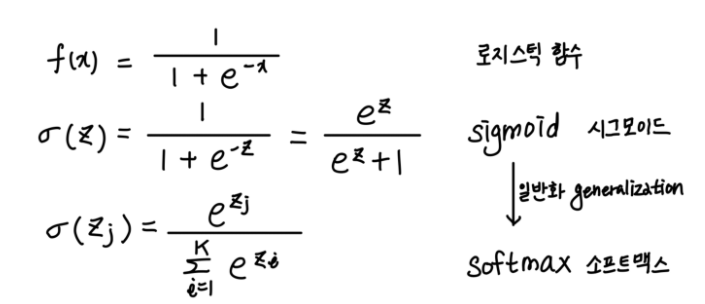 f(x) = 1 / (1 + e^{-x}) 로지스틱 함수
σ(z) = 1 / (1 + e^{-z}) = e^z / (e^z + 1) sigmoid 시그모이드
↓ 일반화 generalization
σ(z_j) = e^{z_j} / \sum_{i=1}^{K} e^{z_i} softmax 소프트맥스